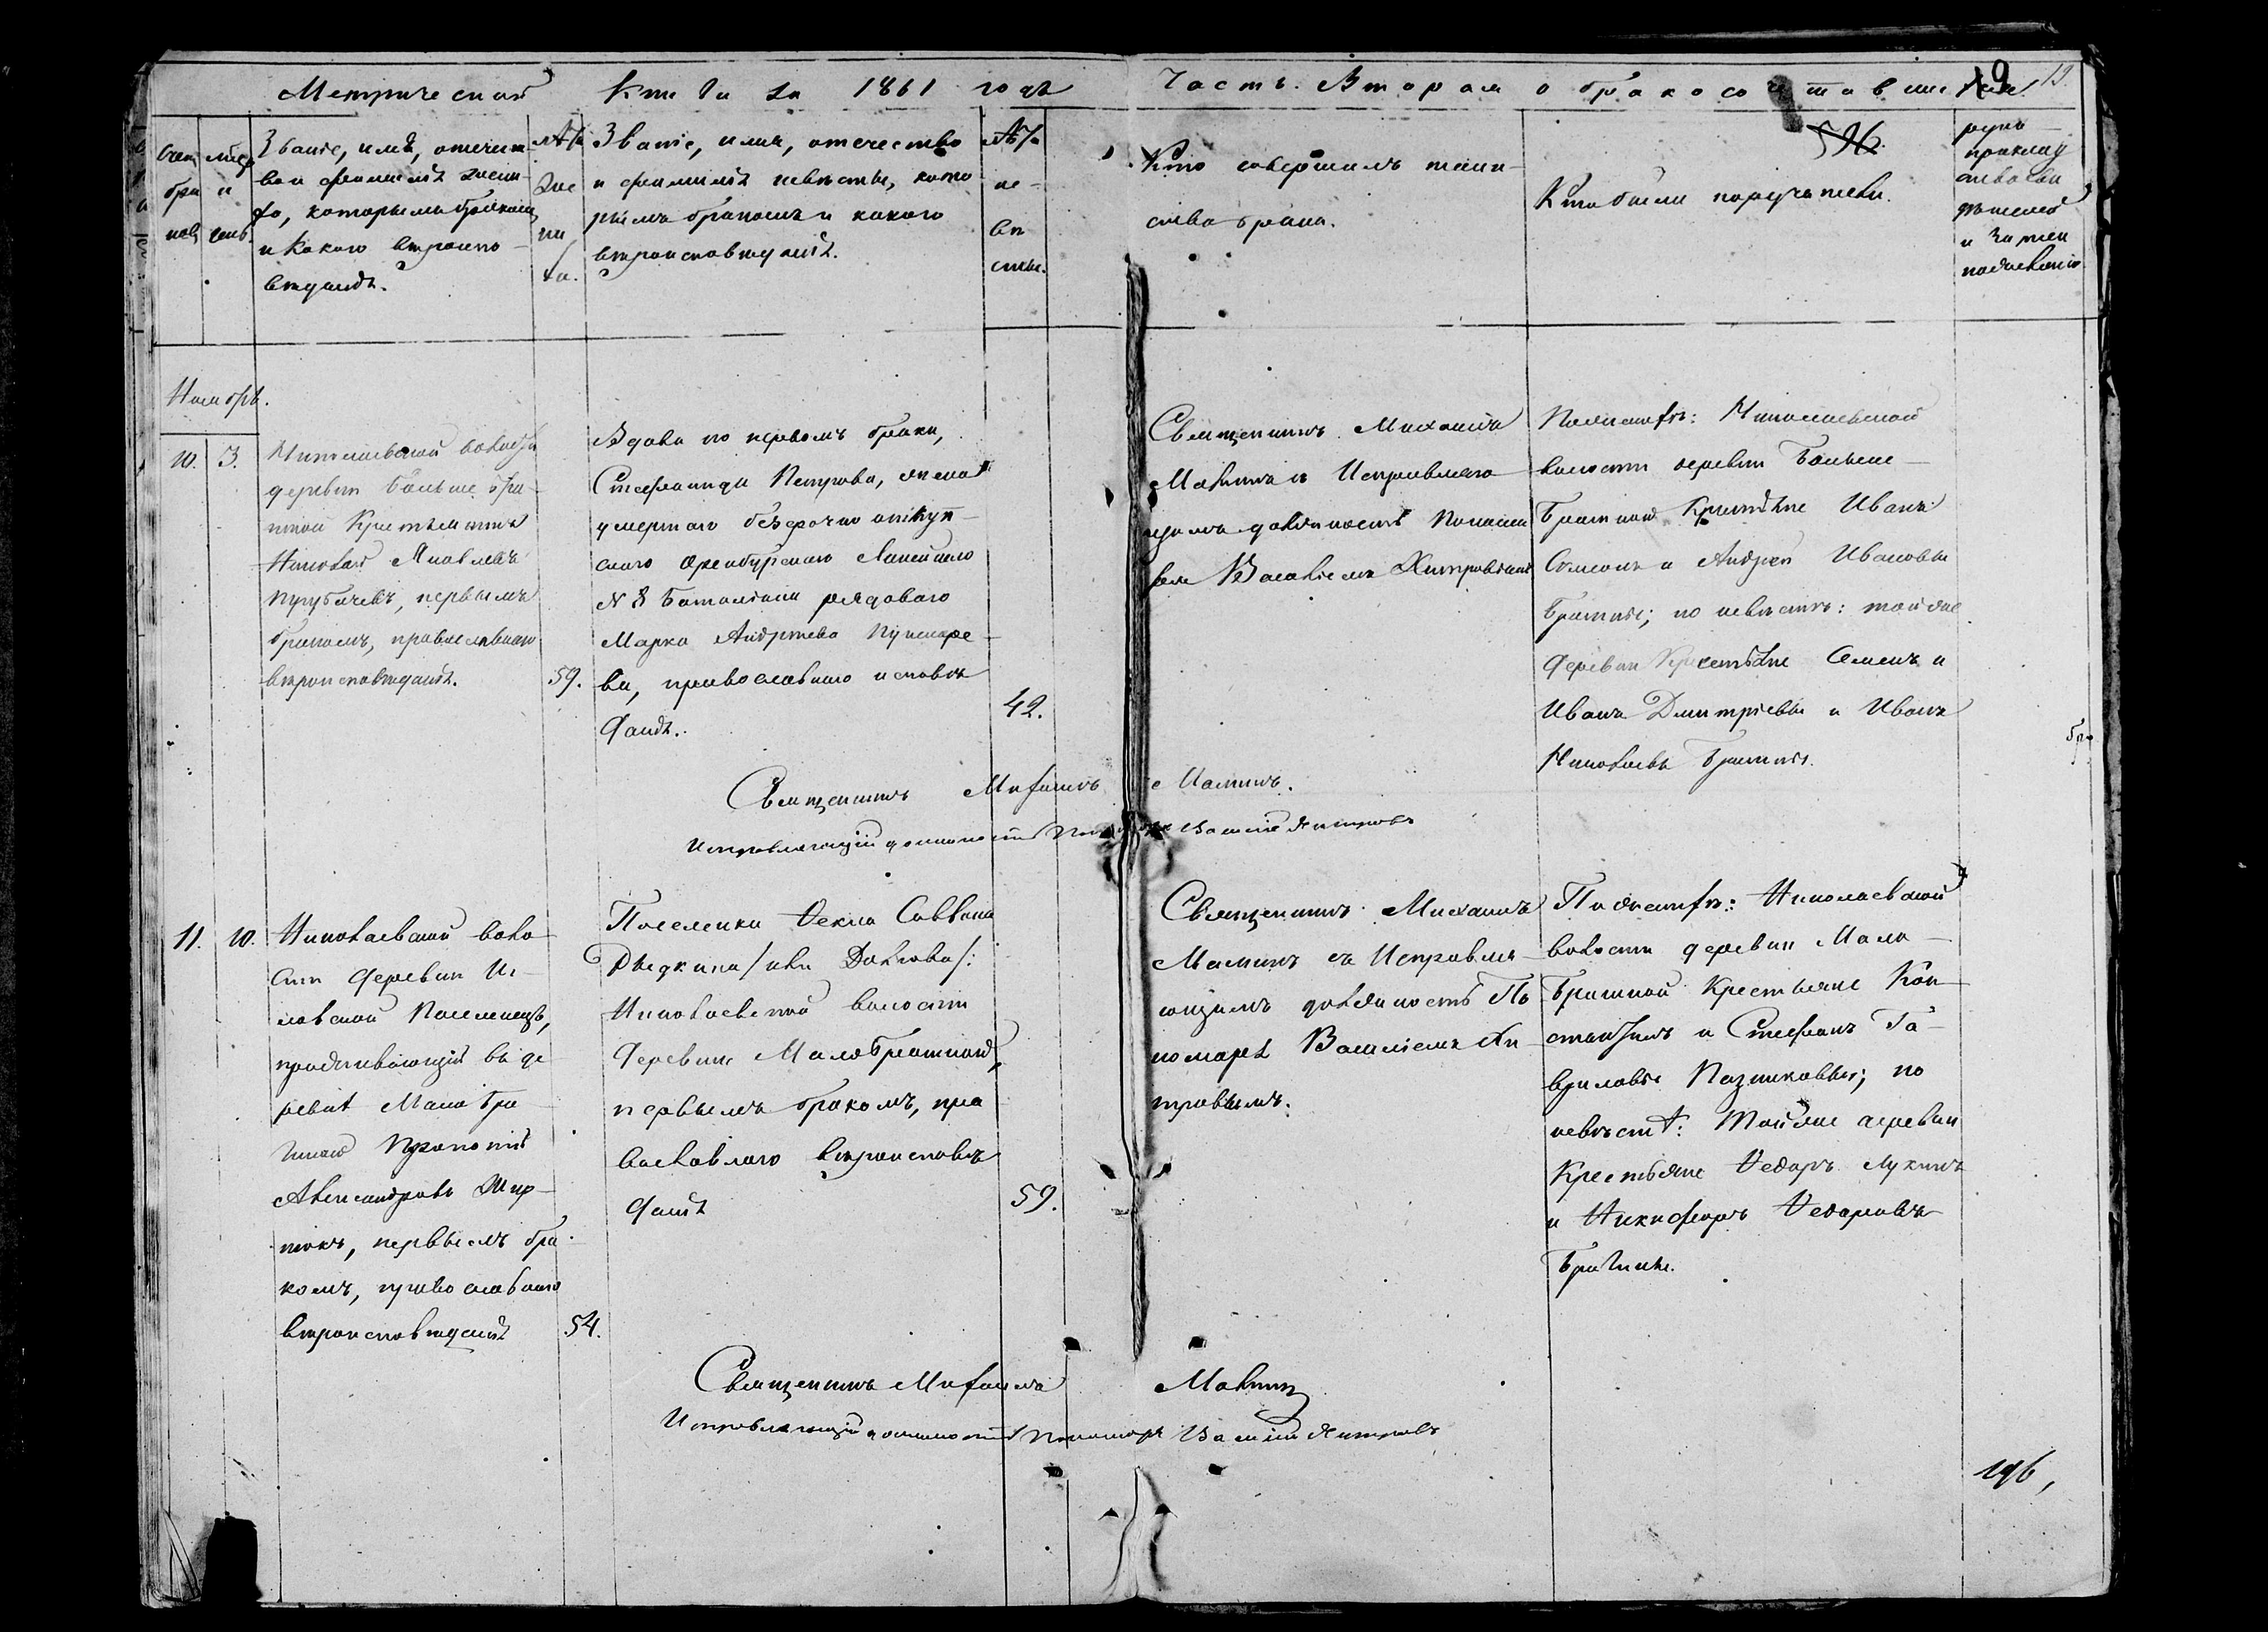 Метрической Книги за 1861 годъ
Часть Вторая о бракосочетавшихся
19
596.
Счет
бра
ков
мѣсяц
и
день.
Званіе, имя, отечест-
во и фамилія жени-
ха, которымъ бракомъ
и какого вѣроиспо-
вѣданія.
Лѣта
же
ни
ха.
Званіе, имя, отечество
и фамилія невѣсты, кото
рымъ бракомъ и какого
вѣроисповѣданія.
Лѣта
не-
вѣ
сты.
Кто совершалъ таин-
ство брака.
Кто были поручители.
рукоприклад
ство сви
дѣтелей
и записи
по желанію
Ноябрь.
10. 3.
Николаевской волости
деревни Больше бра-
тской Крестьянинъ
Николай Яковлевъ
первымъ
бракомъ, православнаго
вѣроисповѣданія.
59.
Вдова по первомъ браки,
Стефанида Петрова, жена
умершаго безсрочно отпуск-
наго Оренбургскаго Линейнаго
№ 8 Баталіона рядоваго
Марка Андреева Пушкаре-
ва, православнаго исповѣ
данія.
42.
Священникъ Михаилъ
Малинъ съ Исправляю
щимъ должность Понома
ря Василіемъ Хитровымъ
По женихѣ: Николаевской
волости деревни Больше-
Братской Крестьяне Иванъ
Семенъ и Андрей Ивановы
Братины; по невѣстѣ: той же
деревни Крестьяне Семенъ и
Иванъ Дмитріевы и Иванъ
Николаевъ Братины.
Священникъ Михаилъ Малинъ.
Исправляющій должность Пономаря Василій Хитровъ
11. 10.
Николаевской воло-
сти деревни
Поселенецъ,
проживающій въ де
ревнѣ Мало Бра-
тской Прокопій
Александровъ
первымъ бра-
комъ, православнаго
вѣроисповѣданія
54.
Поселенка Ѳекла Саввина
Николаевской волости
деревни Малобратской,
первымъ бракомъ, пра
вославнаго вѣроисповѣ
данія
59.
Священникъ Михаилъ
Малинъ съ Исправля-
ющимъ должность По
номаря Василіемъ Хи-
тровымъ.
По женихѣ: Николаевской
волости деревни Мало-
Братской Крестьяне Кон-
стантинъ и Стефанъ Га-
вриловы Пазниковы; по
невѣстѣ: Той же деревни
Крестьяне Ѳедоръ Лукинъ
и Никифоръ Ѳедоровъ
Братины.
Священникъ Михаилъ Малинъ
Исправляющій должность Пономаря Василій Хитровъ
196,